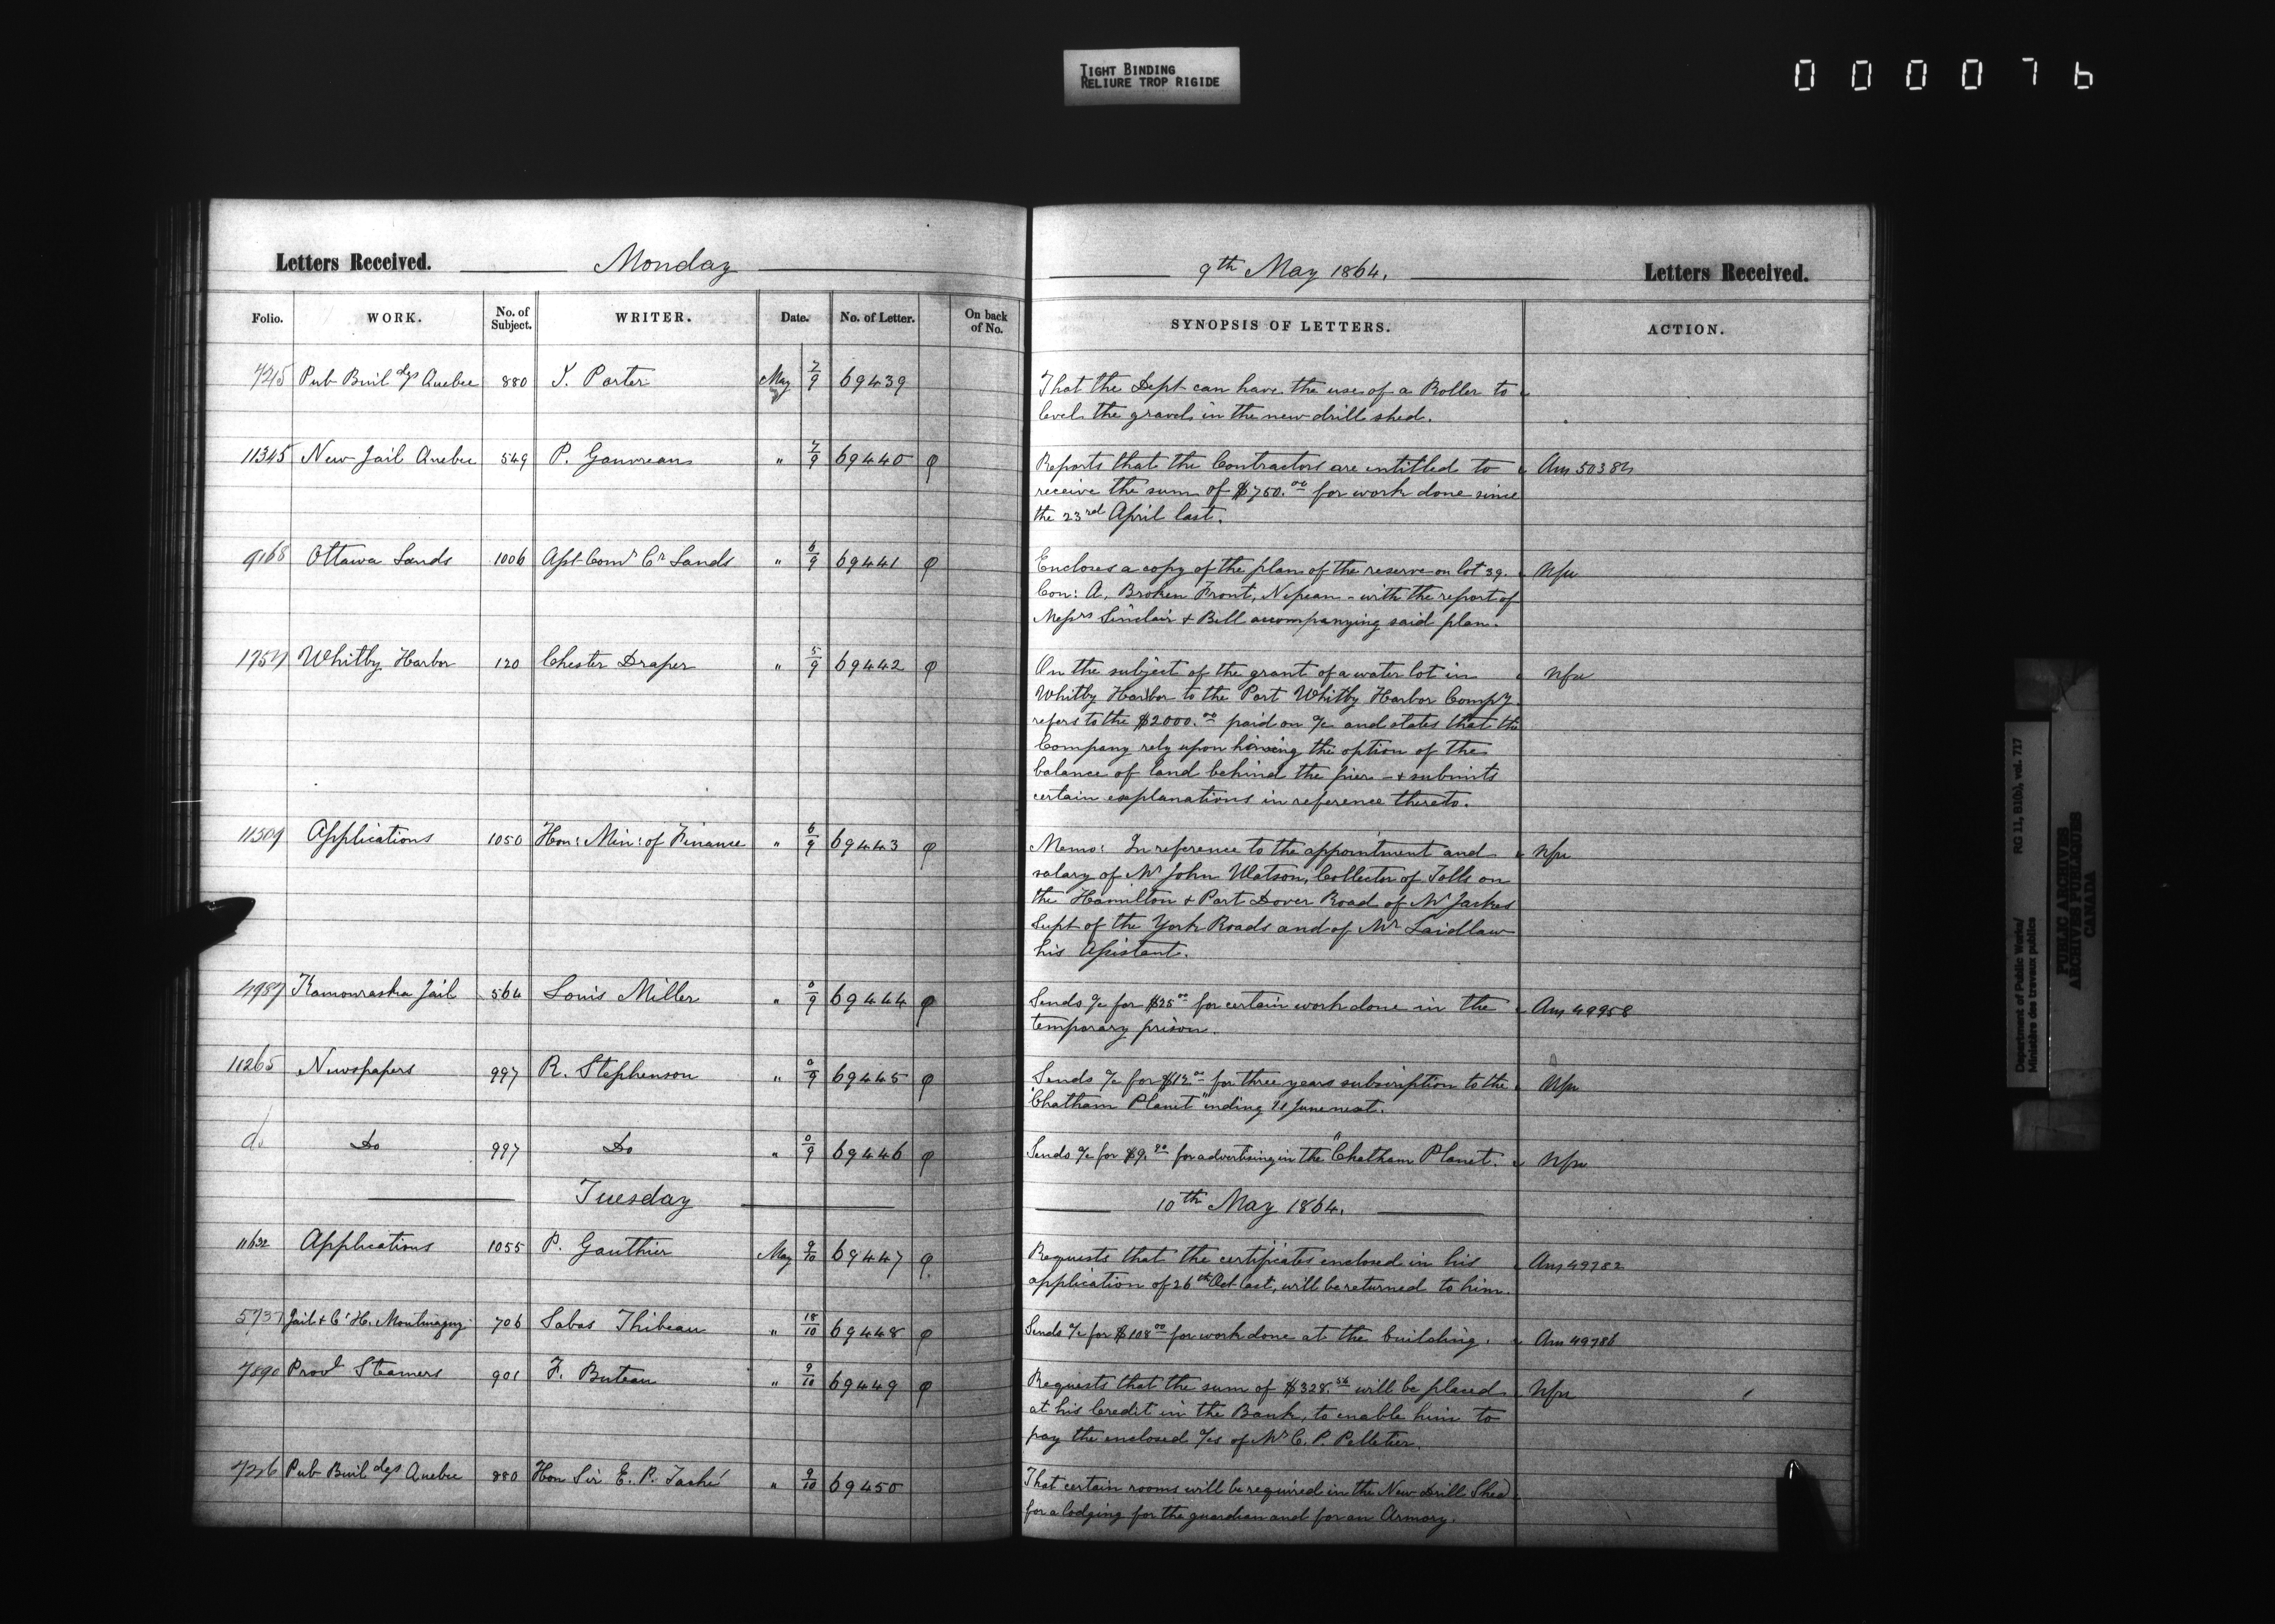 TIGHT BINDING
RELIURE TROP RIGIDE
000076
Letters Received. Monday
Folio. WORK. No. of Subject. WRITER. Date. No. of Letter. On back of No.
7215 Pub Buildgs Quebec 880 T. Porter May 7/9 69439
11345 New Jail Quebec 549 P. Gauvreau " 7/9 69440 φ
9168 Ottawa Lands 1006 Asst Comr Cn Lands " 6/9 69441 φ
1754 Whitby Harbor 120 Chester Draper " 5/9 69442 φ
11509 Applications 1050 Hon: Min: of Finance " 6/9 69443 φ
4987 Kamouraska Jail 564 Louis Miller " 0/9 69444 φ
11265 Newspapers 997 R. Stephenson " 0/9 69445 φ
do Do 997 Do " 0/9 69446 φ
Tuesday
11632 Applications 1055 P. Gauthier May 9/10 69447 φ
5737 Jail & Ct H. Montmagny 706 Sabas Thibeau " 18/10 69448 φ
7890 Provl Steamers 901 F. Buteau " 9/10 69449 φ
7216 Pub Buildgs Quebec 880 Hon Sir E. P. Taché " 9/10 69450
9th May 1864. Letters Received.
SYNOPSIS OF LETTERS. ACTION.
That the Dept can have the use of a Roller to
level the gravel in the new drill shed.
Reports that the Contractors are entitled to Ans 50384
receive the sum of $750.00 for work done since
the 23rd April last.
Encloses a copy of the plan of the reserve on lot 39. Nfa
Con: A, Broken Front, Nepean - with the report of
Messrs Sinclair & Bell accompanying said plan.
On the subject of the grant of a water lot in Nfa
Whitby Harbor to the Port Whitby Harbor Compy.
refers to the $2000.00 paid on a/c and states that the
Company rely upon having the option of the
balance of land behind the pier - & submits
certain explanations in reference thereto.
Memo: In reference to the appointment and Nfa
salary of Mr John Watson, Collector of Tolls on
the Hamilton & Port Dover Road of Mr Jarkes
Supt of the York Roads and of Mr Laidlaw
his Assistant.
Sends a/c for $25.00 for certain work done in the Ans 49958
temporary prison.
Sends a/c for $12.00 for three years subscription to the Nfa
"Chatham Planet" ending 11 June next.
Sends a/c for $9.80 for advertising in the "Chatham Planet. Nfa
10th May 1864.
Requests that the certificates enclosed in his Ans 49782
application of 26th Oct last, will be returned to him.
Sends a/c for $108.00 for work done at the building. Ans 49786
Requests that the sum of $328.56 will be placed Nfa
at his Credit in the Bank, to enable him to
pay the enclosed a/cs of Mr C. P. Pelletier.
That certain rooms will be required in the New Drill Shed
for a lodging for the guardian and for an Armory.
Department of Public Works/ RG 11, B1(b), vol. 717
Ministère des travaux publics
PUBLIC ARCHIVES
ARCHIVES PUBLIQUES
CANADA